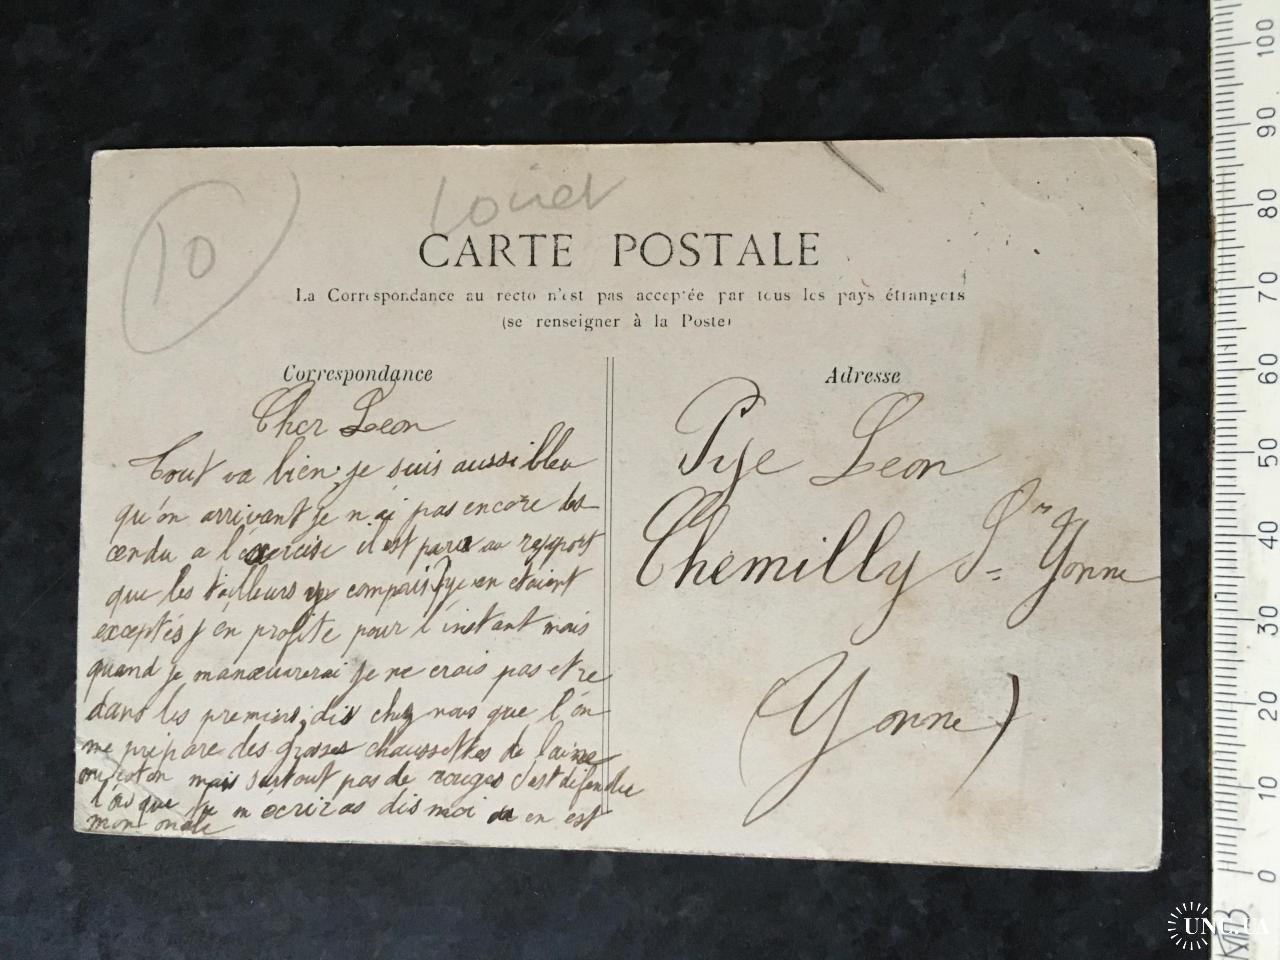 10
Loiret
CARTE POSTALE
La Correspondance au recto n'est pas acceptée par tous les pays étrangers
(se renseigner à la Poste)
Correspondance
Cher Leon
Tout va bien je suis aussi bleu
qu'on arrivant je n'ai pas encore des
cendu a l'exercise il est paru au rapport
que les tailleurs y compris Pye en etaient
exceptés j'en profite pour l'instant mais
quand je manœuvrerai je ne crois pas etre
dans les premiers, dis chez nous que l'on
me prépare des grosses chaussettes de laine
ou coton mais surtout pas de rouges c'est défendu
lorsque tu m'écriras dis moi ou en est
mon
Adresse
Pye Leon
Chemilly S = Yonne
(Yonne)
100
90
80
70
60
50
40
30
20
10
0
UNC.UA